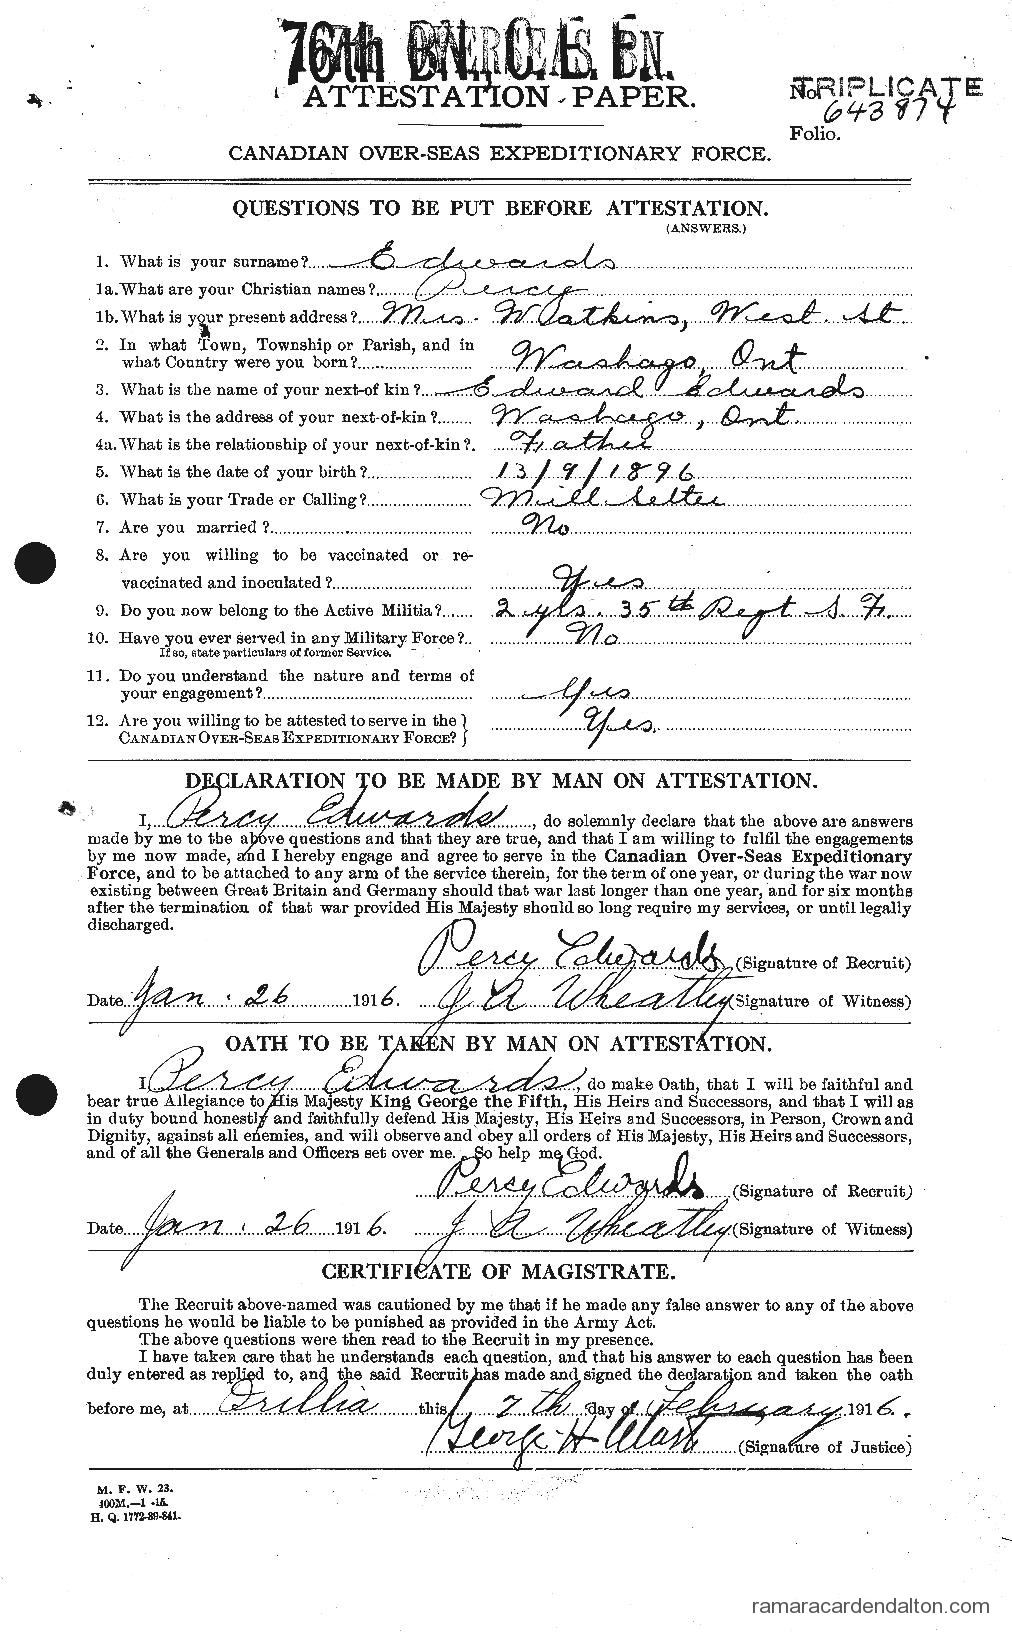 76th BN., C. E. F. OVERSEAS BN.
ATTESTATION PAPER.
No. TRIPLICATE
643874
Folio.
CANADIAN OVER-SEAS EXPEDITIONARY FORCE.
QUESTIONS TO BE PUT BEFORE ATTESTATION.
(ANSWERS.)
1. What is your surname? Edwards
1a. What are your Christian names? Percy
1b. What is your present address? Mrs. Watkins, West. St
2. In what Town, Township or Parish, and in
what Country were you born? Washago, Ont
3. What is the name of your next-of kin? Edward Edwards
4. What is the address of your next-of-kin? Washago, Ont.
4a. What is the relationship of your next-of-kin? Father
5. What is the date of your birth? 13/9/1896
6. What is your Trade or Calling? Mill Setter
7. Are you married? No
8. Are you willing to be vaccinated or re-
vaccinated and inoculated? Yes
9. Do you now belong to the Active Militia? 2 yrs. 35th Regt S. F.
10. Have you ever served in any Military Force? No
If so, state particulars of former Service.
11. Do you understand the nature and terms of
your engagement? Yes
12. Are you willing to be attested to serve in the }
CANADIAN OVER-SEAS EXPEDITIONARY FORCE? } Yes.
DECLARATION TO BE MADE BY MAN ON ATTESTATION.
I, Percy Edwards, do solemnly declare that the above are answers
made by me to the above questions and that they are true, and that I am willing to fulfil the engagements
by me now made, and I hereby engage and agree to serve in the Canadian Over-Seas Expeditionary
Force, and to be attached to any arm of the service therein, for the term of one year, or during the war now
existing between Great Britain and Germany should that war last longer than one year, and for six months
after the termination of that war provided His Majesty should so long require my services, or until legally
discharged.
Percy Edwards (Signature of Recruit)
Date Jan. 26 1916. J A Wheatley (Signature of Witness)
OATH TO BE TAKEN BY MAN ON ATTESTATION.
I, Percy Edwards, do make Oath, that I will be faithful and
bear true Allegiance to His Majesty King George the Fifth, His Heirs and Successors, and that I will as
in duty bound honestly and faithfully defend His Majesty, His Heirs and Successors, in Person, Crown and
Dignity, against all enemies, and will observe and obey all orders of His Majesty, His Heirs and Successors,
and of all the Generals and Officers set over me. So help me God.
Percy Edwards (Signature of Recruit)
Date Jan. 26 1916. J A Wheatley (Signature of Witness)
CERTIFICATE OF MAGISTRATE.
The Recruit above-named was cautioned by me that if he made any false answer to any of the above
questions he would be liable to be punished as provided in the Army Act.
The above questions were then read to the Recruit in my presence.
I have taken care that he understands each question, and that his answer to each question has been
duly entered as replied to, and the said Recruit has made and signed the declaration and taken the oath
before me, at Orillia this 7th day of February 1916.
George H Clark (Signature of Justice)
M. F. W. 23.
400M.—1-15.
H. Q. 1772-39-841.
ramaracardendalton.com